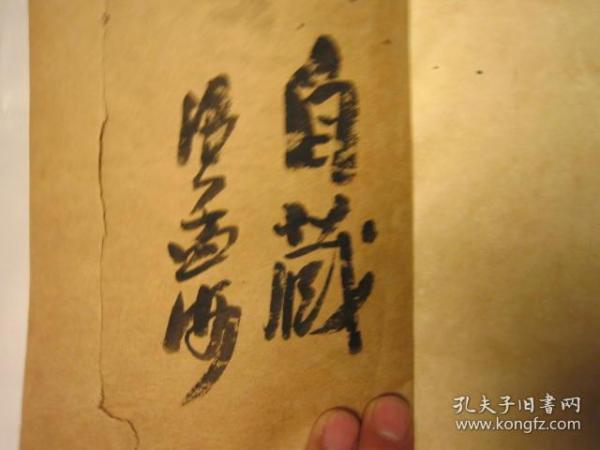 自藏
温孟海
孔夫子旧书网
www.kongfz.com